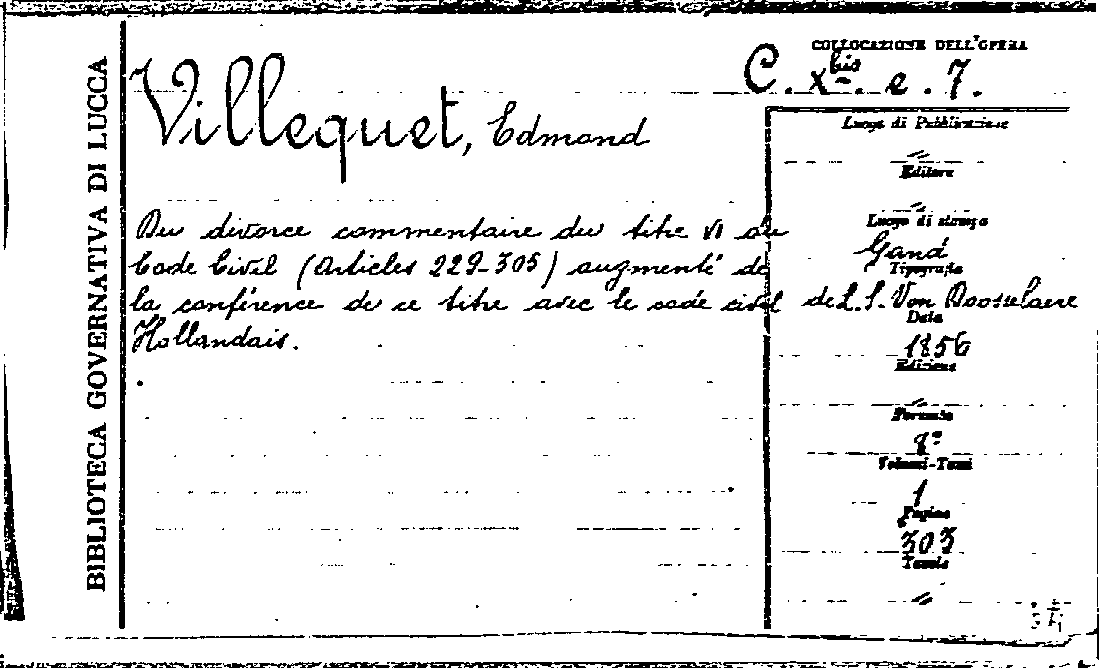 BIBLIOTECA GOVERNATIVA DI LUCCA
COLLOCAZIONE DELL'OPERA
C. X bis. e. 7.
Villequet, Edmond
Luogo di Pubblicazione
Editore
Luogo di stampa
Gand
Tipografia
de L. S. Van Doosselaere
Data
1856
Edizione
Formato
8°
Volumi-Tomi
1
Pagine
303
Tavole
Du divorce commentaire du titre VI du
Code Civil (Articles 229-305) augmenté de
la conférence de ce titre avec le code civil
Hollandais.